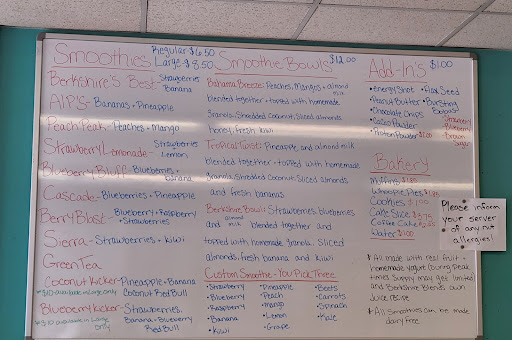 Smoothies Regular $6.50
Large $8.50
Berkshire's Best Strawberries
Banana
AJP's - Bananas + Pineapple
Peach Peak - Peaches + Mango
Strawberry Lemonade - Strawberries
Lemon
Blueberry Bluff - Blueberries +
Banana
Cascade - Blueberries + Pineapple
Berry Blast - Blueberry + Raspberry
+ Strawberries
Sierra - Strawberries + Kiwi
Green Tea
Coconut Kicker - Pineapple + Banana
*$10 available in Large only Coconut Red Bull
Blueberry Kicker - Strawberries,
*$10 available in Large Banana + Blueberry
only Red Bull
Smoothie Bowls $12.00
Bahama Breeze: Peaches, Mangos + almond
milk
blended together + topped with homemade
Granola, Shredded Coconut, Sliced almonds
honey, fresh Kiwi
Tropical Twist: Pineapple and almond milk
blended together + topped with homemade
Granola, Shredded Coconut, Sliced almonds
and fresh bananas
Berkshire Bowl: Strawberries, blueberries
almond
and milk blended together and
topped with homemade granola, Sliced
almonds, fresh banana and kiwi
Custom Smoothie - You Pick Three
• Strawberry
• Blueberry
• Raspberry
• Banana
• Kiwi
• Pineapple
• Peach
• Mango
• Lemon
• Grape
• Beets
• Carrots
• Spinach
• Kale
Add-In's $1.00
• Energy Shot
• Peanut Butter
• Chocolate Chips
• Cocoa Powder
• Protein Powder
• Flax Seed
• Bursting
Boba
Strawberry
Blueberry
Brown
Sugar
Bakery
Muffins
Whoopie Pies
Cookies
Cake Slice $5.75
Coffee Cake
Water $1.00
* All made with real fruit +
homemade yogurt (During peak
times Supply may get limited
and Berkshire Blends own
Juice recipe
* All Smoothies can be made
dairy free
Please inform
your server
of any nut
allergies!